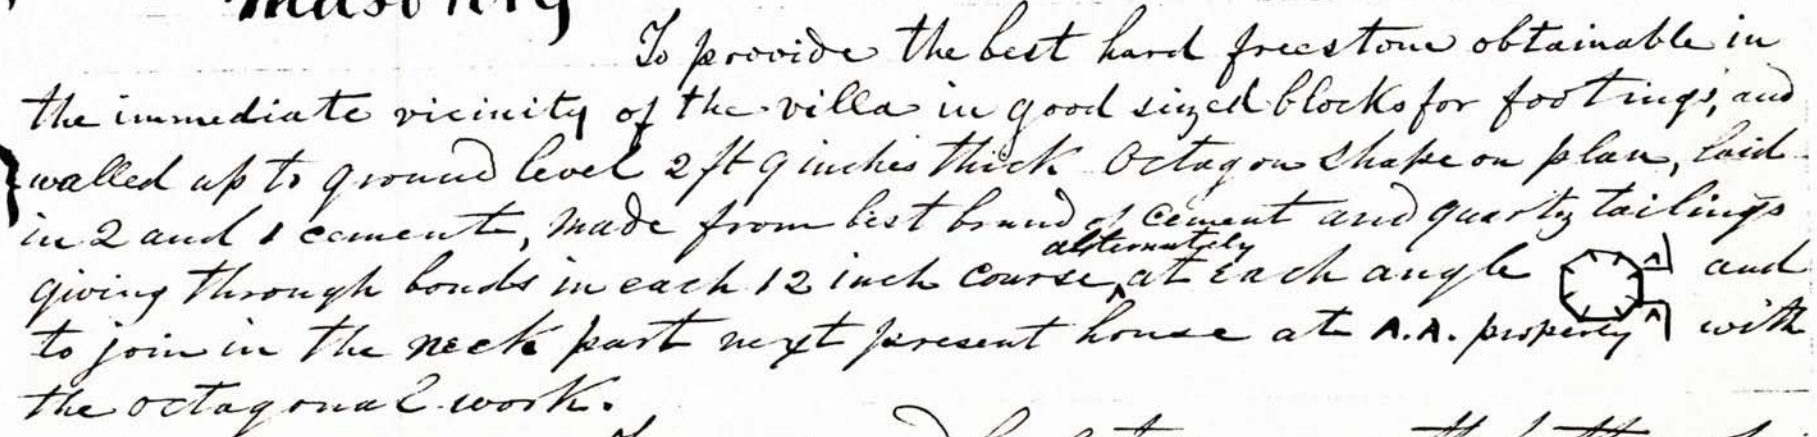 Masonry
To provide the best hard freestone obtainable in
the immediate vicinity of the villa in good sized blocks for footings, and
walled up to ground level 2 ft 9 inches thick Octagon shape on plan, laid
in 2 and 1 cement, made from best brand of cement and quartz tailings
giving through bonds in each 12 inch course, alternately at each angle and
to join in the neck part next present house at A.A. properly with
the octagonal work.